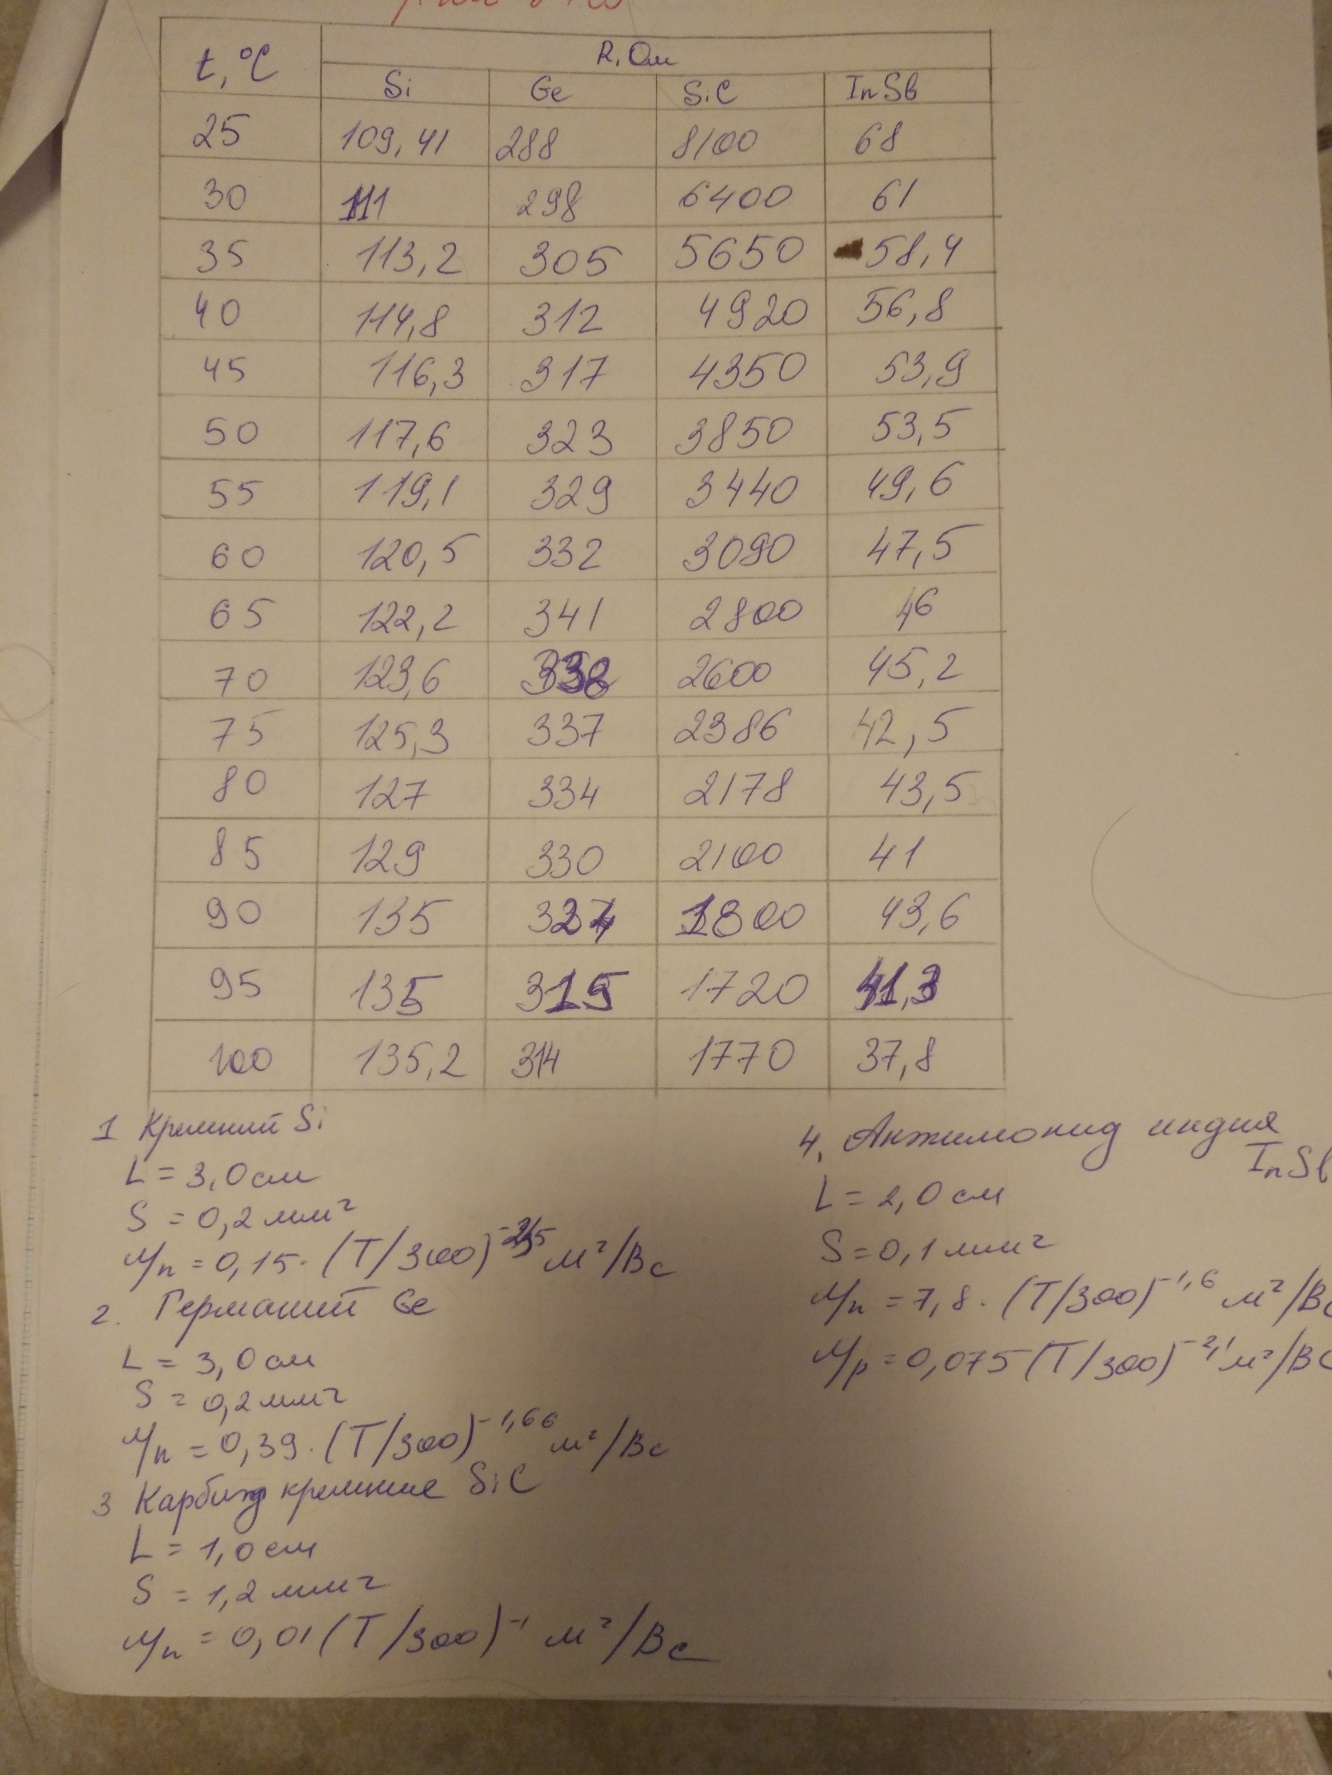 t, °C R, Ом
Si Ge SiC InSb
25 109,41 288 8100 68
30 111 298 6400 61
35 113,2 305 5650 58,4
40 114,8 312 4920 56,8
45 116,3 317 4350 53,9
50 117,6 323 3850 53,5
55 119,1 329 3440 49,6
60 120,5 332 3090 47,5
65 122,2 341 2800 46
70 123,6 338 2600 45,2
75 125,3 337 2386 42,5
80 127 334 2178 43,5
85 129 330 2100 41
90 135 324 1800 43,6
95 135 315 1720 41,3
100 135,2 314 1770 37,8
1 Кремний Si
L = 3,0 см
S = 0,2 мм²
μn = 0,15 · (T/300) м²/Вс
2. Германий Ge
L = 3,0 см
S = 0,2 мм²
μn = 0,39 · (T/300)^-1,66 м²/Вс
3 Карбид кремние SiC
L = 1,0 см
S = 1,2 мм²
μn = 0,01 (T/300)^-1 м²/Вс
4. Антимонид индия
InSb
L = 2,0 см
S = 0,1 мм²
μn = 7,8 · (T/300)^-1,6 м²/Вс
μp = 0,075 (T/300)^-2,1 м²/Вс